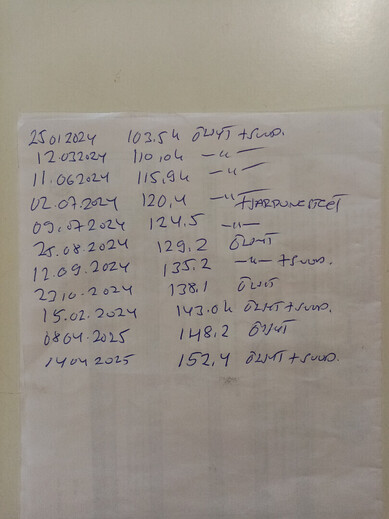 25.01.2024 103.5h ÖLJYT +SUOD.
12.03.2024 110.0h —"—
11.06.2024 115.9h —"—
02.07.2024 120,4 —"— +JARRUNESTEET
09.07.2024 124.5 —"—
25.08.2024 129.2 ÖLJYT
12.09.2024 135.2 —"— +SUOD.
23.10.2024 138.1 ÖLJYT
15.02.2024 143.0h ÖLJYT +SUOD.
08.04.2025 148.2 ÖLJYT
14.04.2025 152,4 ÖLJYT +SUOD.